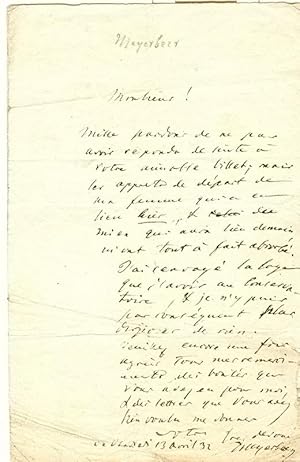 Meyerbeer
Monsieur!
Mille pardons de ne pas
avoir repondu de suite à
votre aimable billet; mais
les apprets de départ de
ma femme qui a eu
lieu hier, & celui du
mien qui aura lieu demain
m'ont tout à fait absorbé.
J'ai renvoyé la loge
que j'avois au Conserva-
toire, & je n'y puis
par conséquent plus
disposer de rien.
Veuillez encore une fois
agréer tous mes remerci-
ments des bontés que
vous avez eu pour moi,
& des lettres que vous avez
bien voulu me donner
Votre dévoué
ce Vendredi 13 avril 32 Meyerbeer